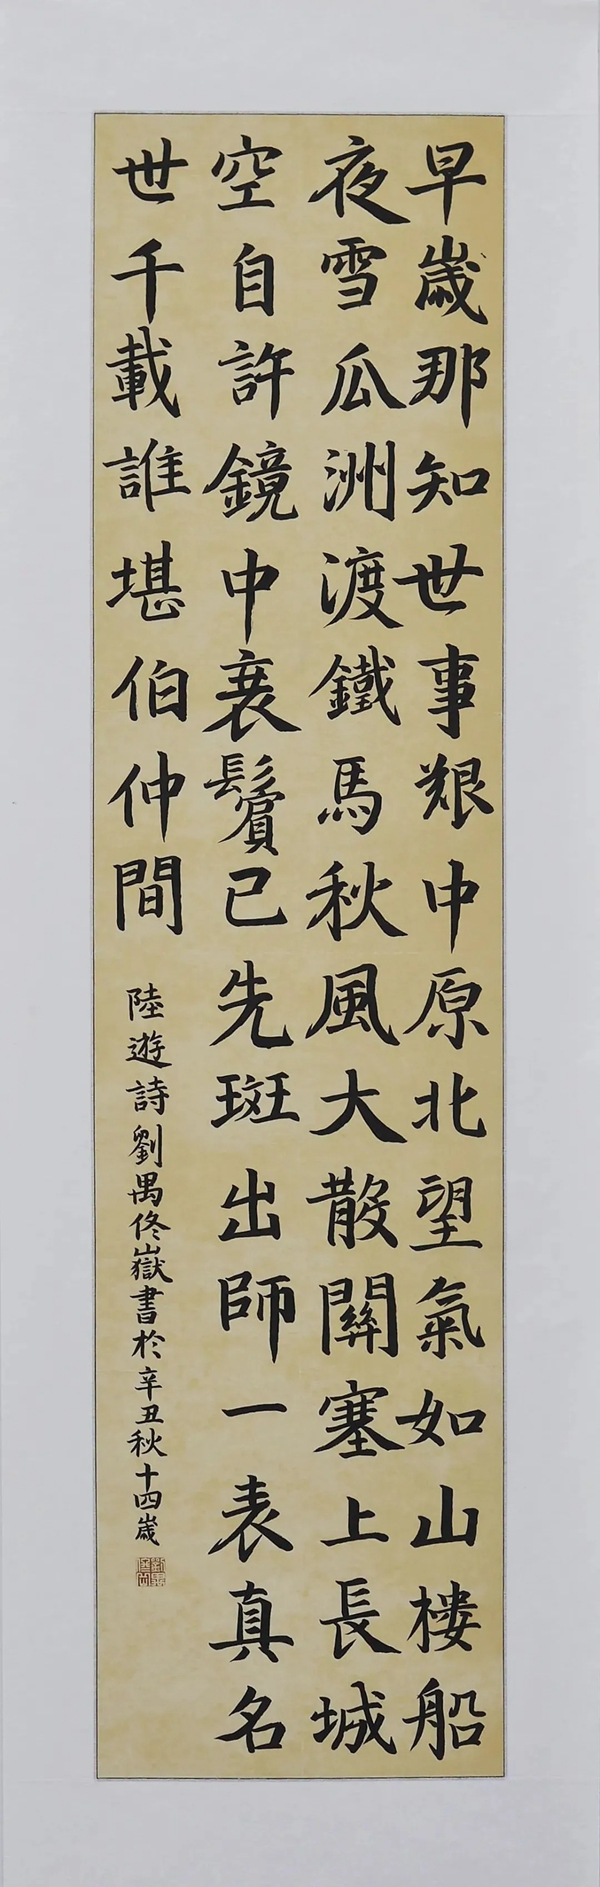 早歲那知世事艱中原北望氣如山樓船
夜雪瓜洲渡鐵馬秋風大散關塞上長城
空自許鏡中衰鬢已先斑出師一表真名
世千載誰堪伯仲間
陸遊詩劉禺佟嶽書於辛丑秋十四歲